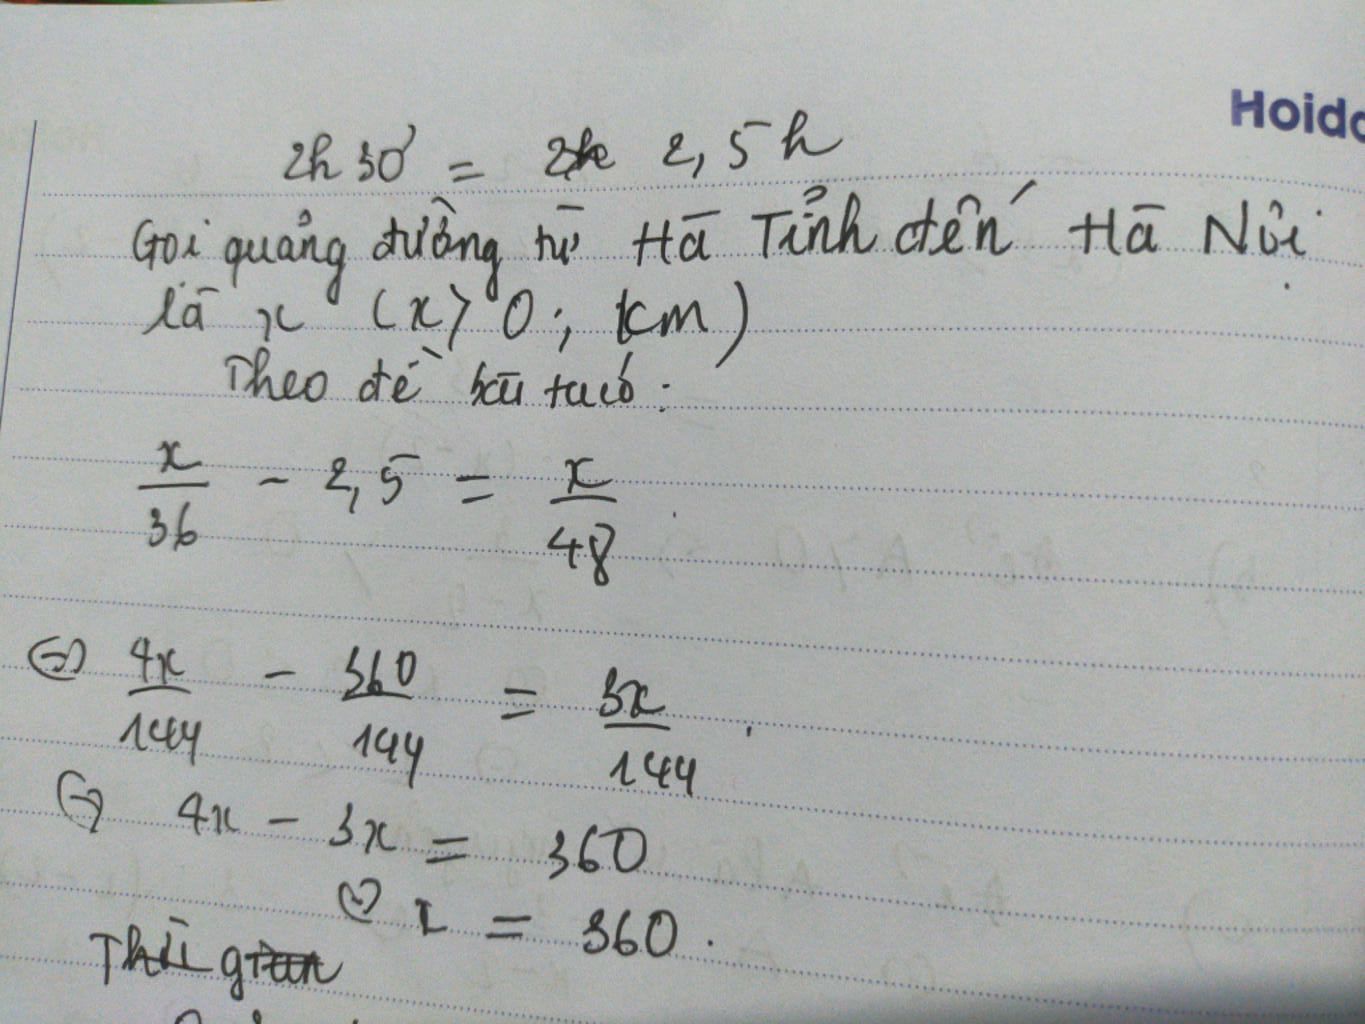 Hoidc
2h 30' = 2,5h
Gọi quảng đường từ Hà Tỉnh đến Hà Nội
là x (x > 0; km)
Theo đề bài ta có:
x/36 - 2,5 = x/48
⇔ 4x/144 - 360/144 = 3x/144
⇔ 4x - 3x = 360
⇔ x = 360.